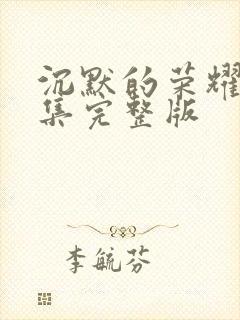 沉默的荣耀
集完整版
李毓芬